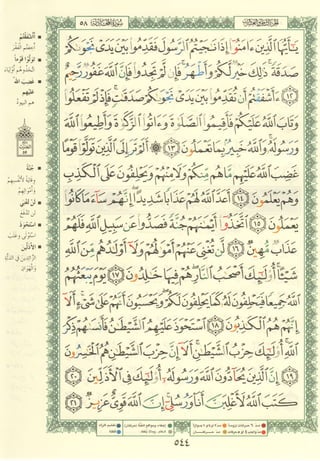 ٥٨ سُورَةُ المُجَادلَةِ الجُزْءُ الثَّامِنُ وَالعِشْرُونَ
يَٰٓأَيُّهَا ٱلَّذِينَ ءَامَنُوٓا۟ إِذَا نَٰجَيْتُمُ ٱلرَّسُولَ فَقَدِّمُوا۟ بَيْنَ يَدَىْ نَجْوَىٰكُمْ
صَدَقَةً ۚ ذَٰلِكَ خَيْرٌ لَّكُمْ وَأَطْهَرُ ۚ فَإِن لَّمْ تَجِدُوا۟ فَإِنَّ ٱللَّهَ غَفُورٌ رَّحِيمٌ
﴿١٢﴾ ءَأَشْفَقْتُمْ أَن تُقَدِّمُوا۟ بَيْنَ يَدَىْ نَجْوَىٰكُمْ صَدَقَٰتٍ ۚ فَإِذْ لَمْ تَفْعَلُوا۟
وَتَابَ ٱللَّهُ عَلَيْكُمْ فَأَقِيمُوا۟ ٱلصَّلَوٰةَ وَءَاتُوا۟ ٱلزَّكَوٰةَ وَأَطِيعُوا۟ ٱللَّهَ
وَرَسُولَهُۥ ۚ وَٱللَّهُ خَبِيرٌۢ بِمَا تَعْمَلُونَ ﴿١٣﴾ ۞ أَلَمْ تَرَ إِلَى ٱلَّذِينَ تَوَلَّوْا۟ قَوْمًا
غَضِبَ ٱللَّهُ عَلَيْهِم مَّا هُم مِّنكُمْ وَلَا مِنْهُمْ وَيَحْلِفُونَ عَلَى ٱلْكَذِبِ
وَهُمْ يَعْلَمُونَ ﴿١٤﴾ أَعَدَّ ٱللَّهُ لَهُمْ عَذَابًا شَدِيدًا ۖ إِنَّهُمْ سَآءَ مَا كَانُوا۟
يَعْمَلُونَ ﴿١٥﴾ ٱتَّخَذُوٓا۟ أَيْمَٰنَهُمْ جُنَّةً فَصَدُّوا۟ عَن سَبِيلِ ٱللَّهِ فَلَهُمْ
عَذَابٌ مُّهِينٌ ﴿١٦﴾ لَّن تُغْنِىَ عَنْهُمْ أَمْوَٰلُهُمْ وَلَآ أَوْلَٰدُهُم مِّنَ ٱللَّهِ
شَيْـًٔا ۚ أُو۟لَٰٓئِكَ أَصْحَٰبُ ٱلنَّارِ ۖ هُمْ فِيهَا خَٰلِدُونَ ﴿١٧﴾ يَوْمَ يَبْعَثُهُمُ
ٱللَّهُ جَمِيعًا فَيَحْلِفُونَ لَهُۥ كَمَا يَحْلِفُونَ لَكُمْ ۖ وَيَحْسَبُونَ أَنَّهُمْ عَلَىٰ شَىْءٍ ۚ أَلَآ
إِنَّهُمْ هُمُ ٱلْكَٰذِبُونَ ﴿١٨﴾ ٱسْتَحْوَذَ عَلَيْهِمُ ٱلشَّيْطَٰنُ فَأَنسَىٰهُمْ ذِكْرَ
ٱللَّهِ ۚ أُو۟لَٰٓئِكَ حِزْبُ ٱلشَّيْطَٰنِ ۚ أَلَآ إِنَّ حِزْبَ ٱلشَّيْطَٰنِ هُمُ ٱلْخَٰسِرُونَ
﴿١٩﴾ إِنَّ ٱلَّذِينَ يُحَآدُّونَ ٱللَّهَ وَرَسُولَهُۥٓ أُو۟لَٰٓئِكَ فِى ٱلْأَذَلِّينَ ﴿٢٠﴾
كَتَبَ ٱللَّهُ لَأَغْلِبَنَّ أَنَا۠ وَرُسُلِىٓ ۚ إِنَّ ٱللَّهَ قَوِىٌّ عَزِيزٌ ﴿٢١﴾
٥٤٤